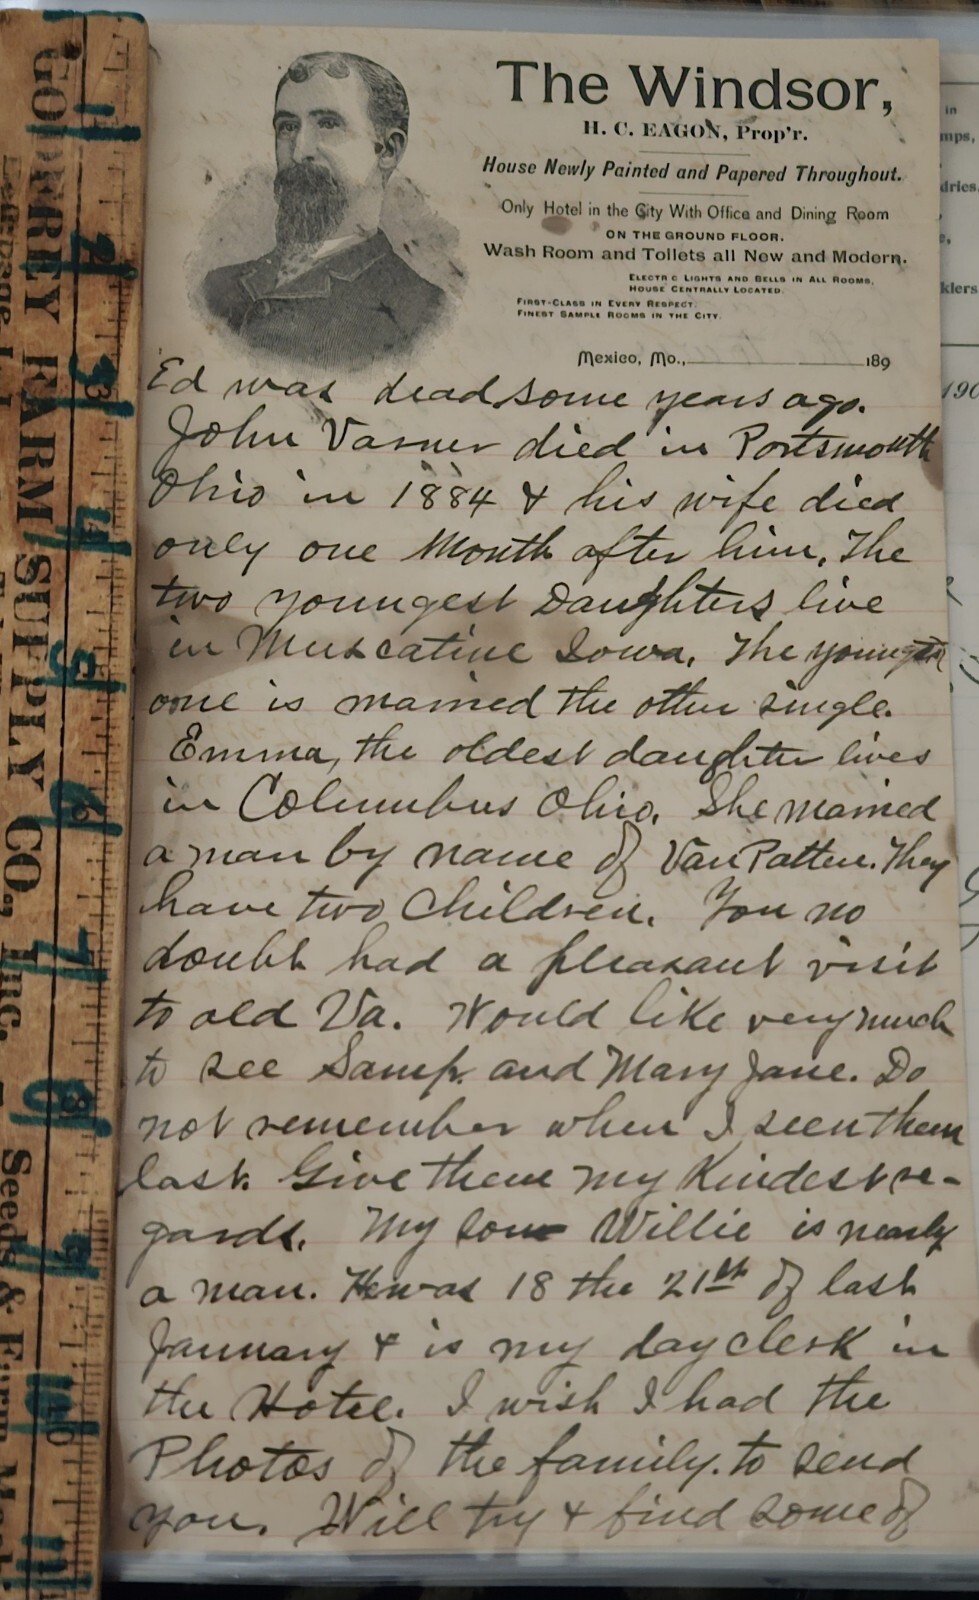 The Windsor,
H. C. EAGON, Prop'r.
House Newly Painted and Papered Throughout.
Only Hotel in the City With Office and Dining Room
ON THE GROUND FLOOR.
Wash Room and Toilets all New and Modern.
ELECTRIC LIGHTS AND BELLS IN ALL ROOMS,
HOUSE CENTRALLY LOCATED.
FIRST-CLASS IN EVERY RESPECT.
FINEST SAMPLE ROOMS IN THE CITY.
Mexico, Mo., 189
Ed was dead some years ago.
John Varner died in Portsmouth
Ohio in 1884 & his wife died
only one Month after him. The
two youngest Daughters live
in Muscatine Iowa. The youngest
one is married the other single.
Emma, the oldest daughter lives
in Columbus Ohio. She married
a man by name of Van Patten. They
have two Children. You no
doubt had a pleasant visit
to old Va. Would like very much
to see Samp. and Mary Jane. Do
not remember when I seen them
last. Give them my Kindest re-
gards. My son Willie is nearly
a man. He was 18 the 21st of last
January & is my day clerk in
the Hotel. I wish I had the
Photos of the family. to send
you. Will try & find some of
GOFFREY FARM SUPPLY CO., INC. - Seeds & Farm
1 2 3 4 5 6 7 8 9 10 11
in
mps,
dries,
klers
190